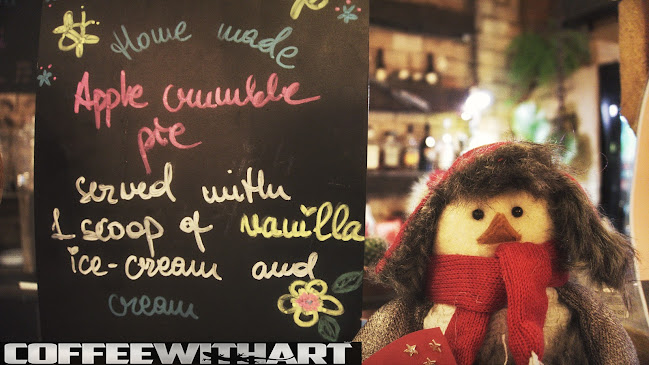 Home made
Apple crumble
pie
served with
1 scoop of vanilla
ice-cream and
cream
COFFEEWITHART